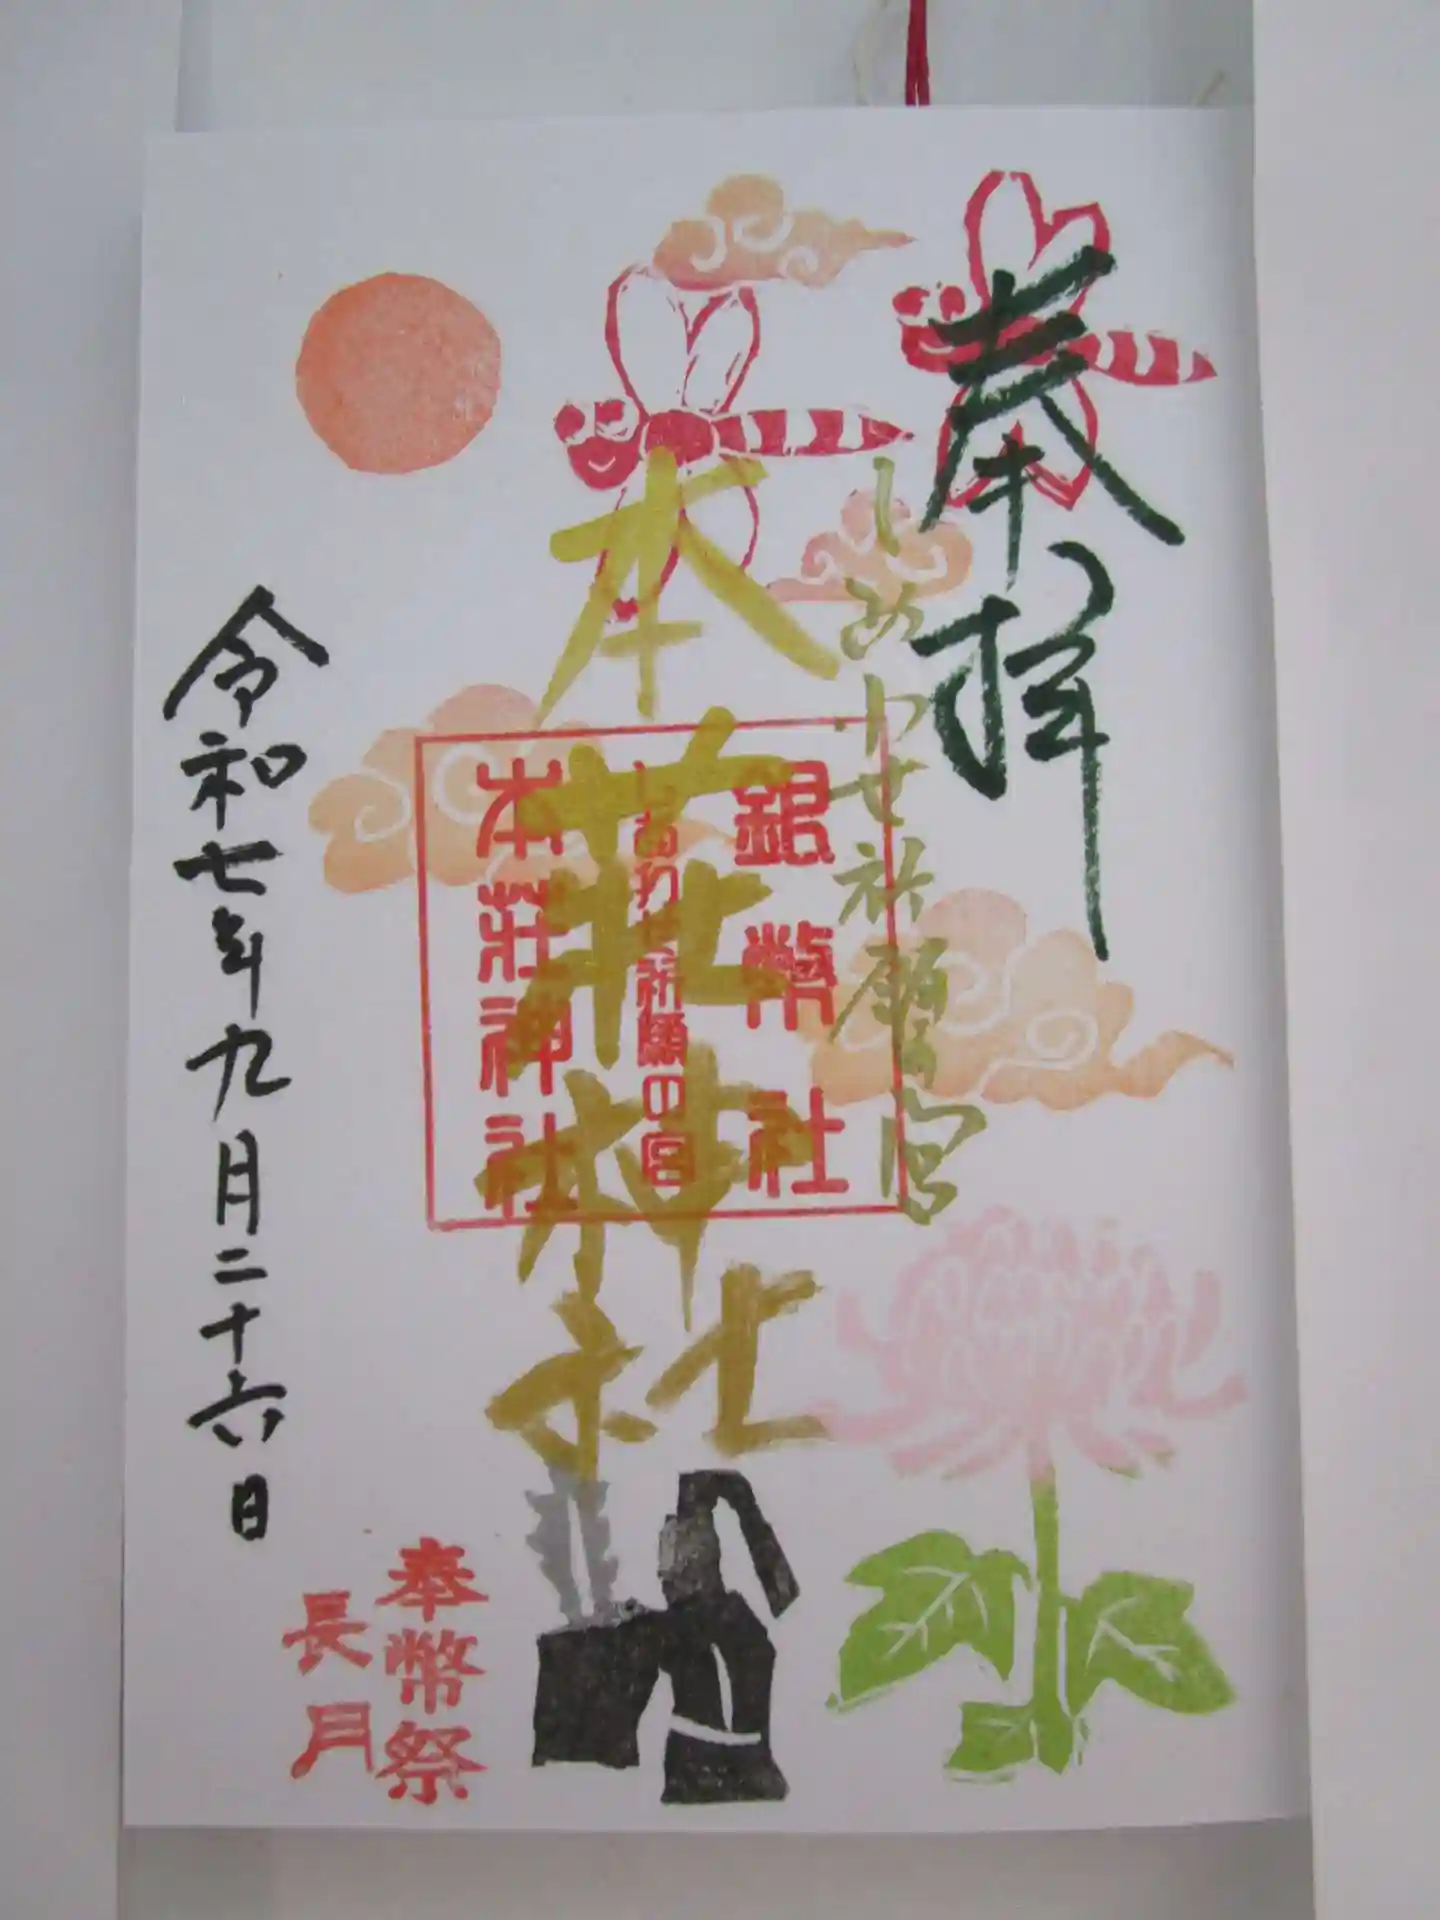 奉拝
しあわせ祈願宮
本荘神社
銀幣社
しあわせ祈願の宮
本荘神社
令和七年九月二十六日
奉幣祭
長月